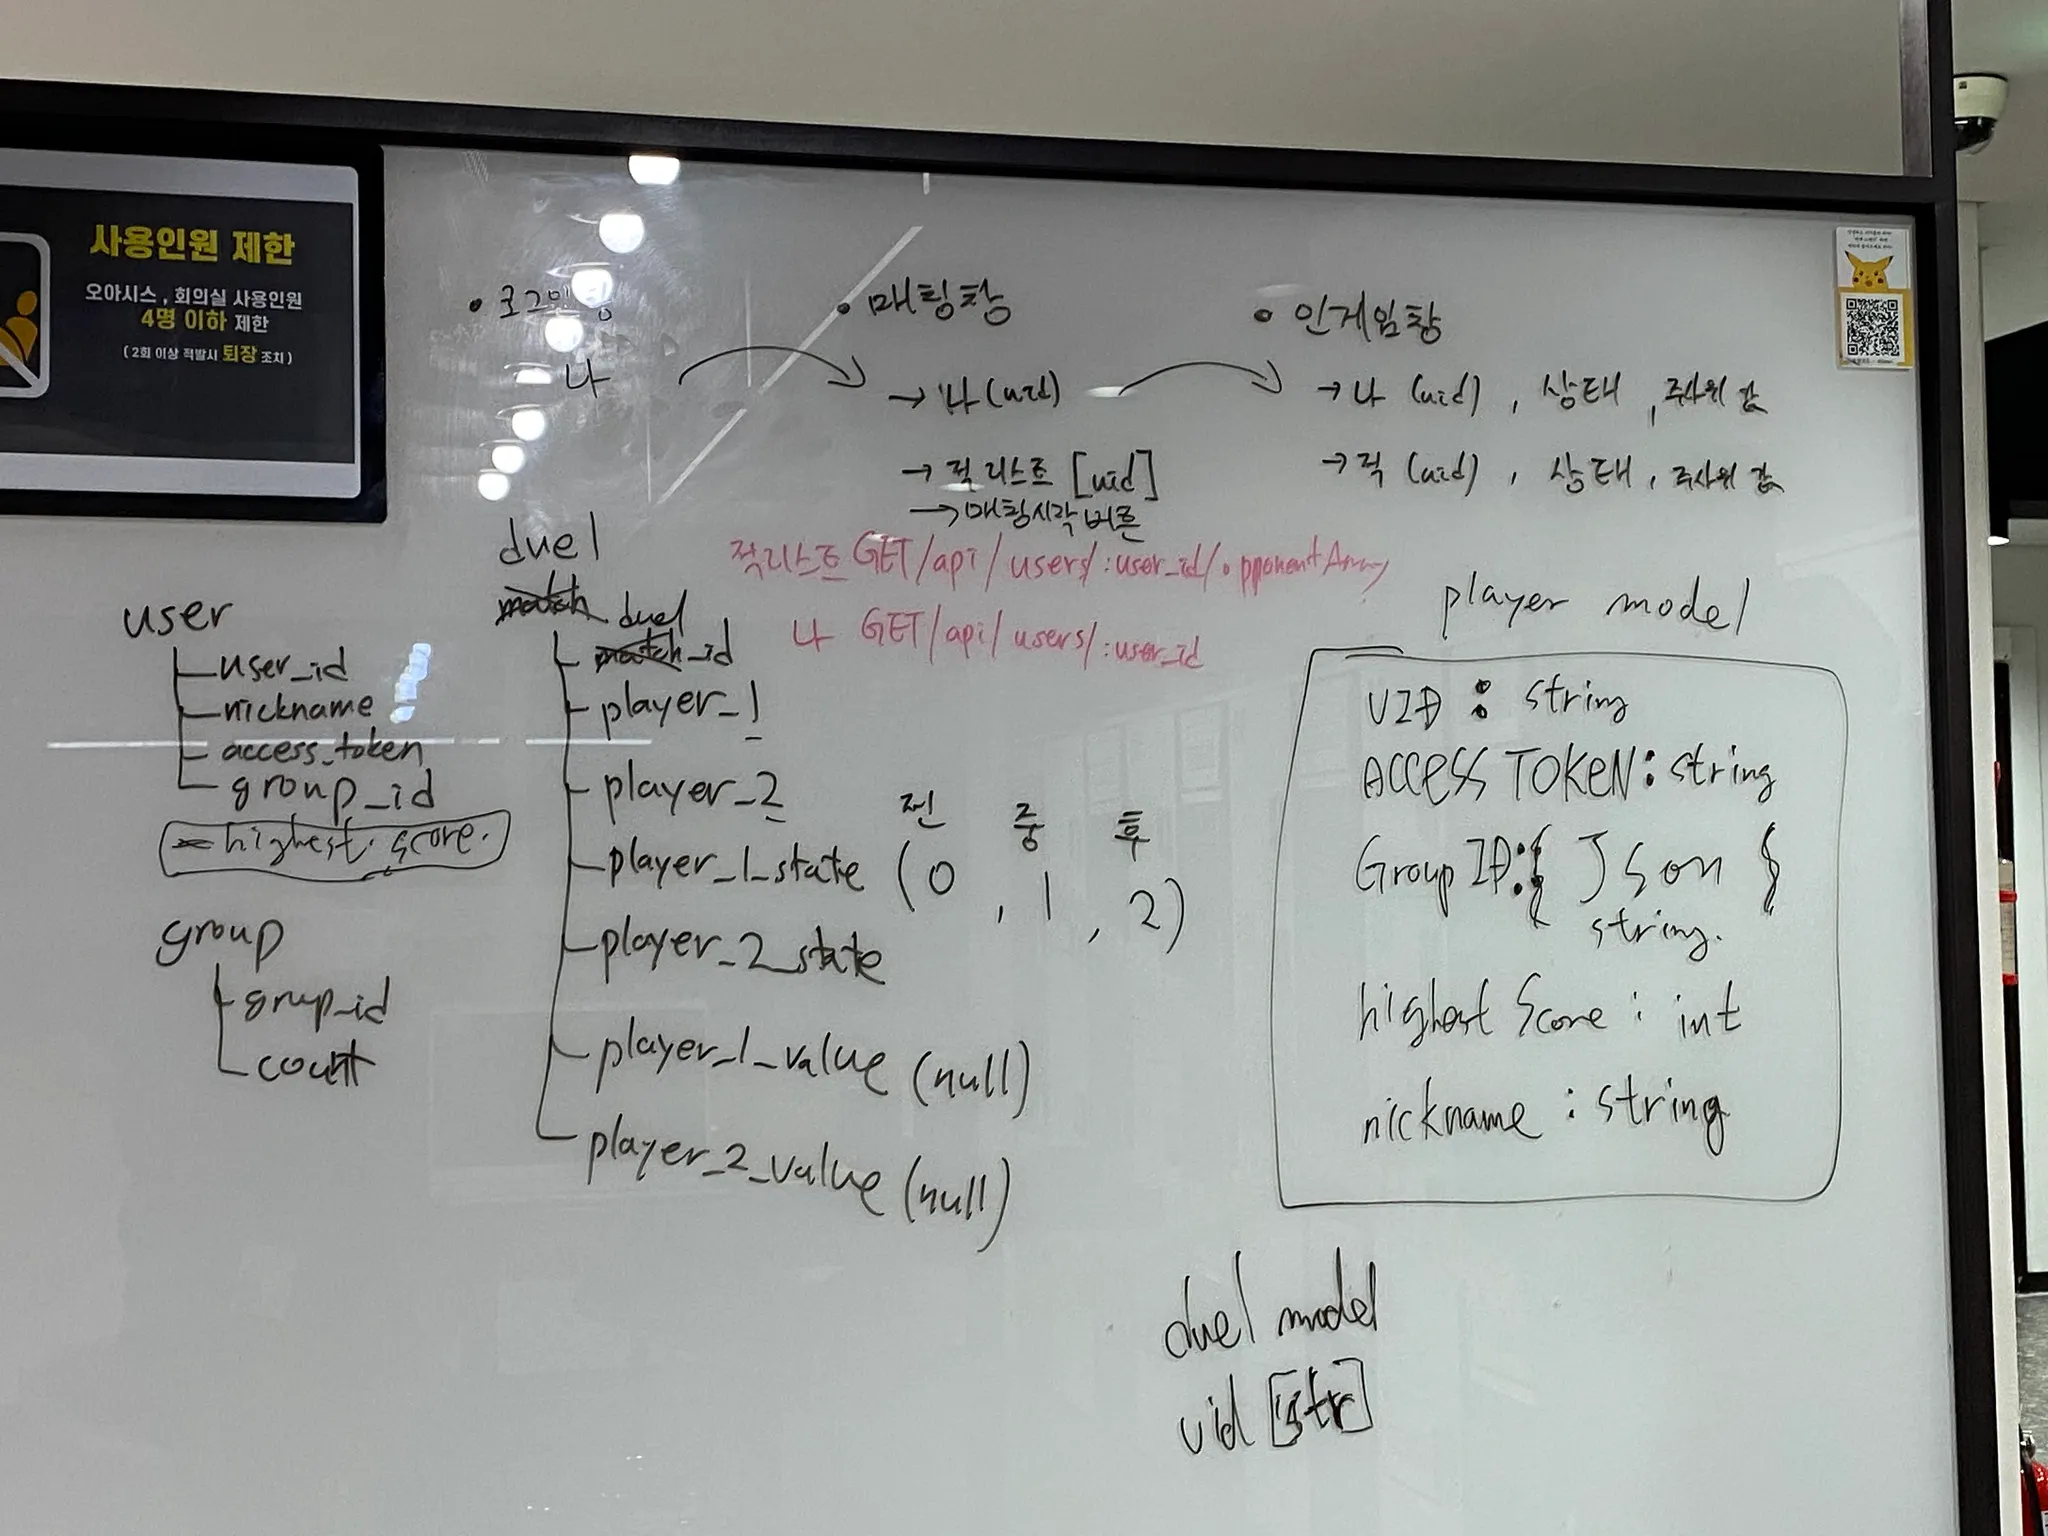 사용인원 제한
오아시스, 회의실 사용인원
4명 이하 제한
( 2회 이상 적발시 퇴장 조치 )
• 매칭창
• 인게임창
나
→ 나 (uid)
→ 나 (uid) , 상태 , 주사위 값
→ 적 리스트 [uid]
→ 적 (uid) , 상태 , 주사위 값
→ 매칭시작 버튼
적리스트 GET/api/users/:user_id/opponentArray
나 GET/api/users/:user_id
user
user_id
nickname
access_token
group_id
highest score.
group
grup_id
count
duel
match duel
match_id
player_1
player_2
전 중 후
player_1_state (0 , 1 , 2)
player_2_state
player_1_value (null)
player_2_value (null)
player model
UID : string
ACCESS TOKEN : string
Group ID : { Json }
string.
highest Score : int
nickname : string
duel model
uid [str]